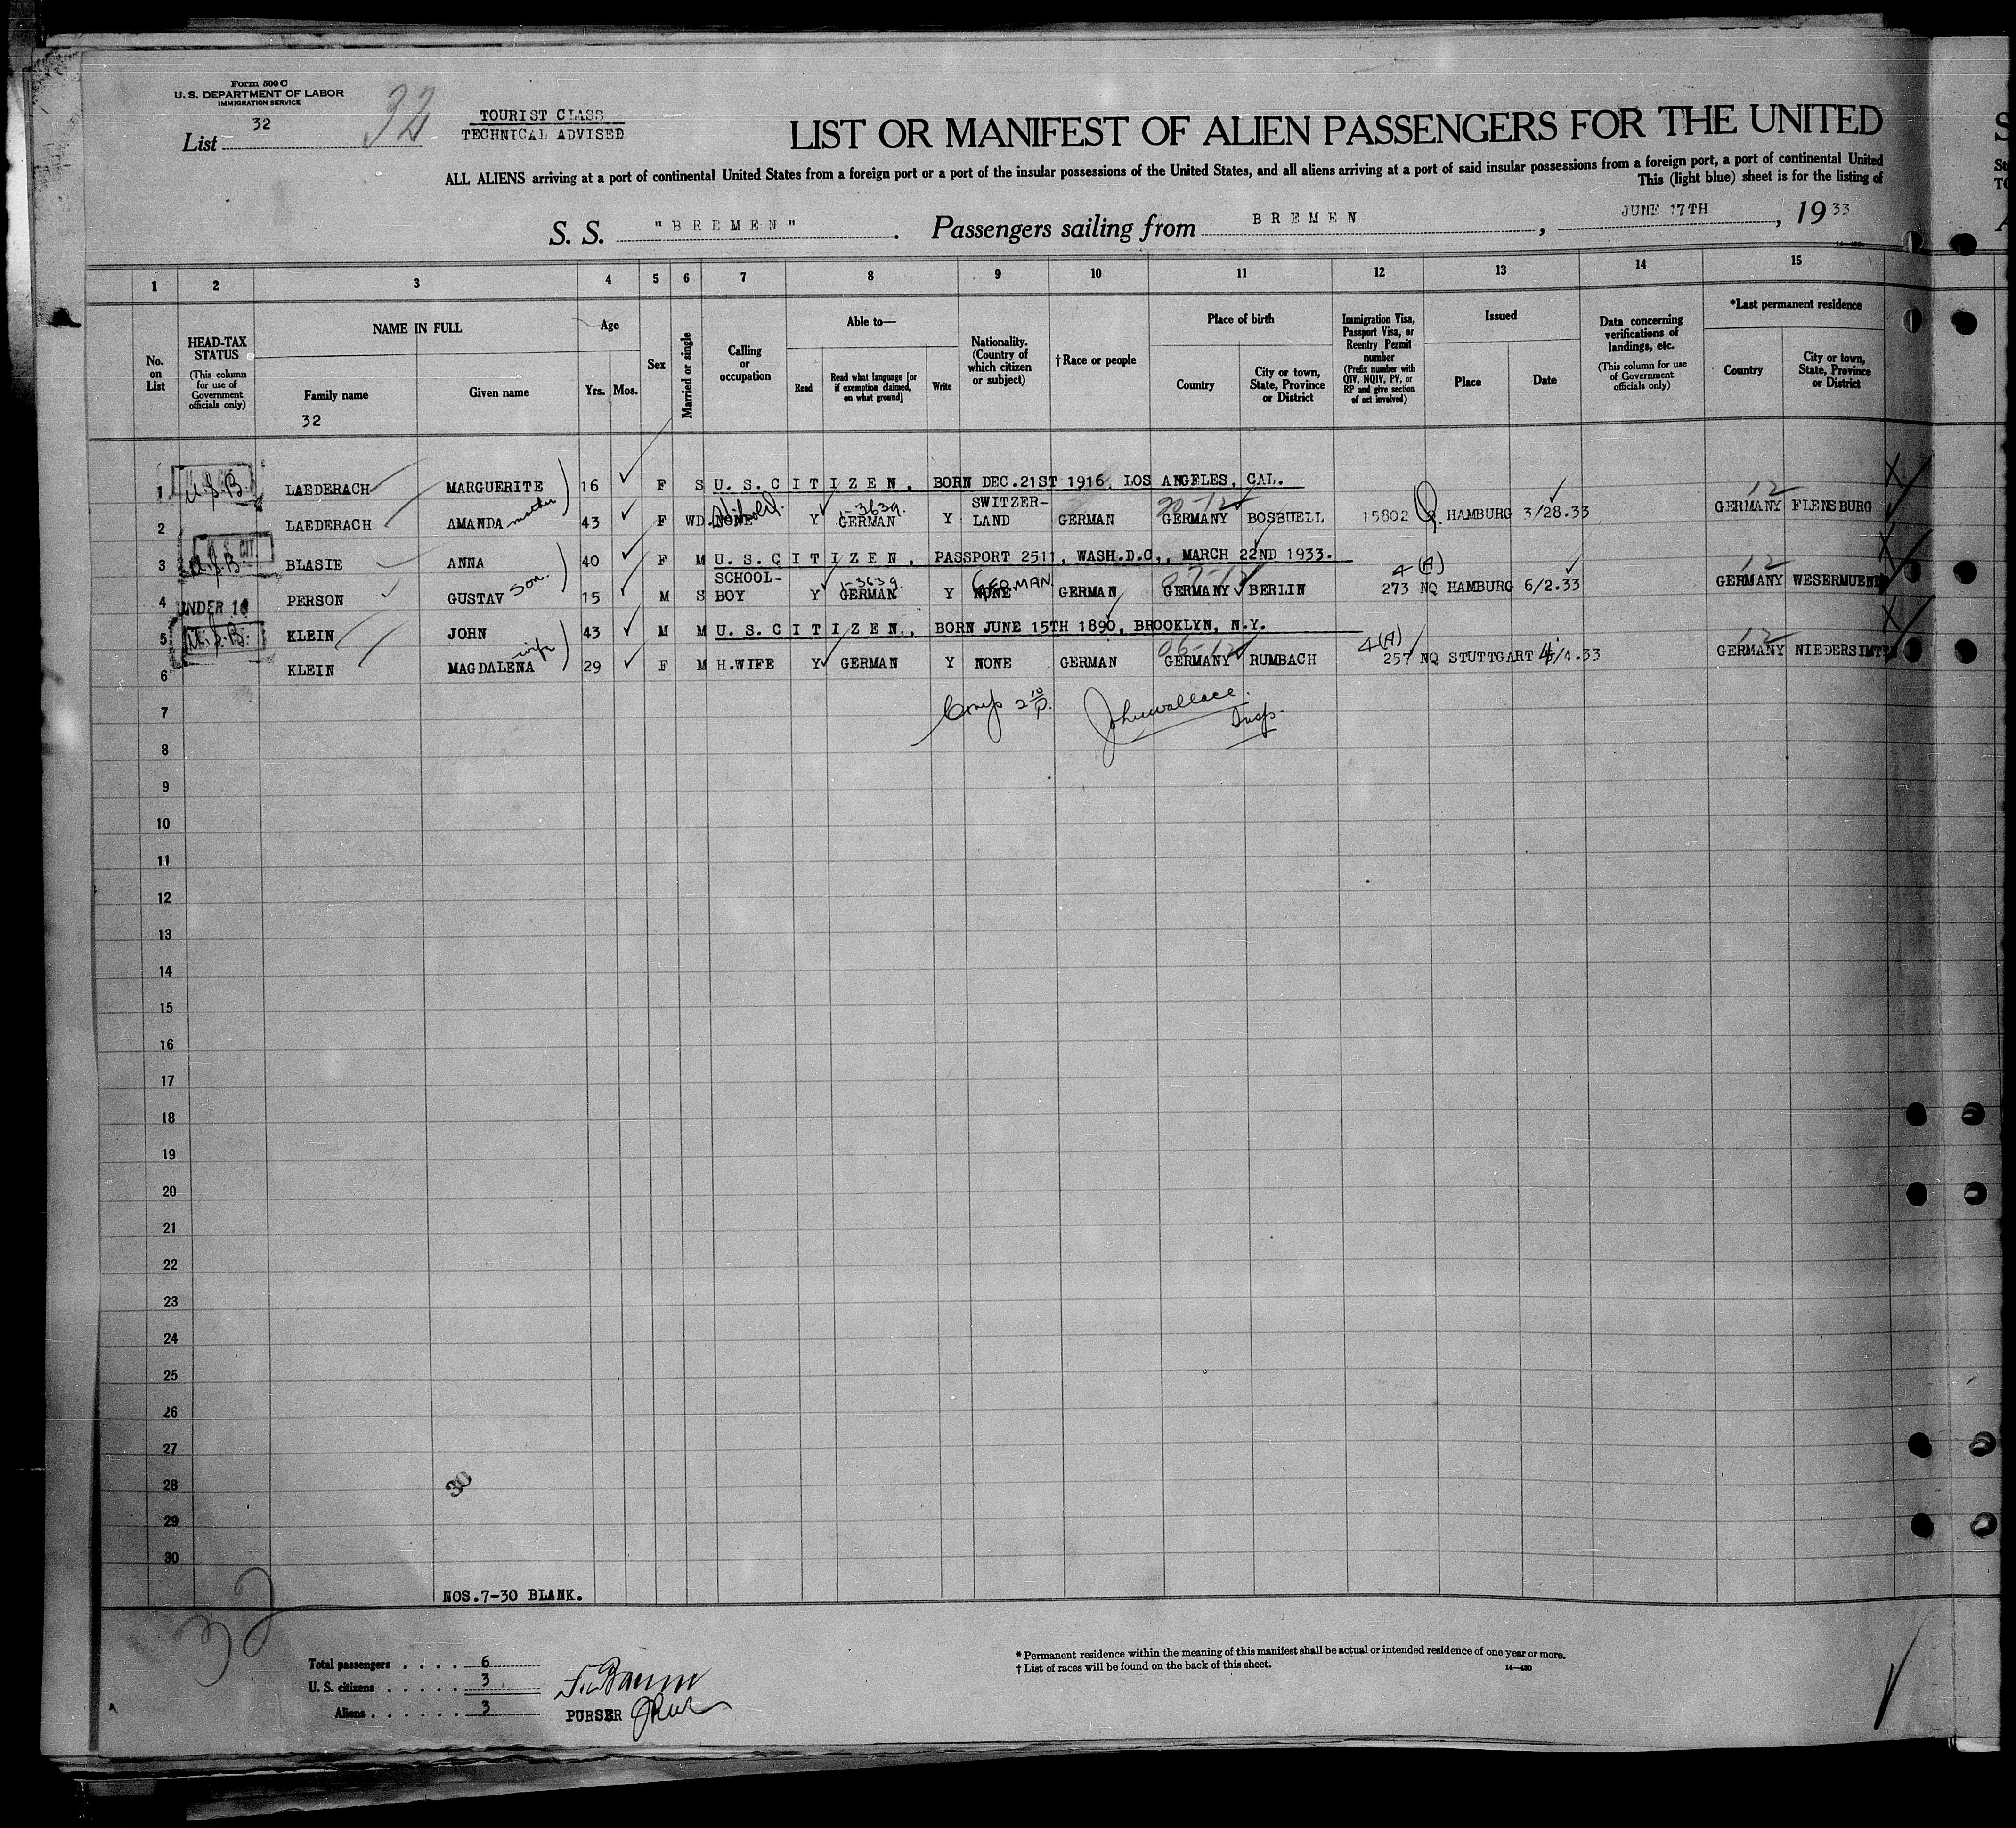 Form 500 C
U. S. DEPARTMENT OF LABOR
IMMIGRATION SERVICE
List 32
32
TOURIST CLASS
TECHNICAL ADVISED
LIST OR MANIFEST OF ALIEN PASSENGERS FOR THE UNITED
ALL ALIENS arriving at a port of continental United States from a foreign port or a port of the insular possessions of the United States, and all aliens arriving at a port of said insular possessions from a foreign port, a port of continental United
This (light blue) sheet is for the listing of
S. S. "BREMEN". Passengers sailing from BREMEN, JUNE 17TH, 1933
1 2 3 4 5 6 7 8 9 10 11 12 13 14 15
No. on List
HEAD-TAX STATUS
(This column for use of Government officials only)
NAME IN FULL
Family name
Given name
32
Age
Yrs. Mos.
Sex
Married or single
Calling or occupation
Able to—
Read
Read what language [or if exemption claimed, on what ground]
Write
Nationality. (Country of which citizen or subject)
†Race or people
Place of birth
Country
City or town, State, Province or District
Immigration Visa, Passport Visa, or Reentry Permit number
(Prefix number with QIV, NQIV, PV, or RP and give section of act involved)
Issued
Place
Date
Data concerning verifications of landings, etc.
(This column for use of Government officials only)
*Last permanent residence
Country
City or town, State, Province or District
1 U.S.B. LAEDERACH MARGUERITE 16 F S U. S. C I T I Z E N, BORN DEC.21ST 1916, LOS ANGELES, CAL.
2 LAEDERACH AMANDA mother 43 F WD. NONE Y 1-3639. GERMAN Y SWITZER-LAND GERMAN 20-12 GERMANY BOSBUELL 15802 Q HAMBURG 3/28.33 12 GERMANY FLENSBURG
3 BLASIE ANNA 40 F M U. S. C I T I Z E N, PASSPORT 2511, WASH.D.C., MARCH 22ND 1933.
4 UNDER 16 PERSON GUSTAV son. 15 M S SCHOOL-BOY Y 1-3639. GERMAN Y NONE GERMAN GERMAN GERMANY BERLIN 4(A) 273 NQ HAMBURG 6/2.33 12 GERMANY WESERMUENDE
5 U.S.B. KLEIN JOHN 43 M M U. S. C I T I Z E N, BORN JUNE 15TH 1890, BROOKLYN, N.Y.
6 KLEIN MAGDALENA wife 29 F M H.WIFE Y GERMAN Y NONE GERMAN 06-12 GERMANY RUMBACH 4(A) 257 NQ STUTTGART /4.33 12 GERMANY
7
John Wallace. Insp.
8
9
10
11
12
13
14
15
16
17
18
19
20
21
22
23
24
25
26
27
28 30
29
30
NOS.7-30 BLANK.
32
Total passengers . . . . 6
U. S. citizens . . . . . 3
Aliens . . . . . . 3
PURSER
* Permanent residence within the meaning of this manifest shall be actual or intended residence of one year or more.
† List of races will be found on the back of this sheet.
14—430